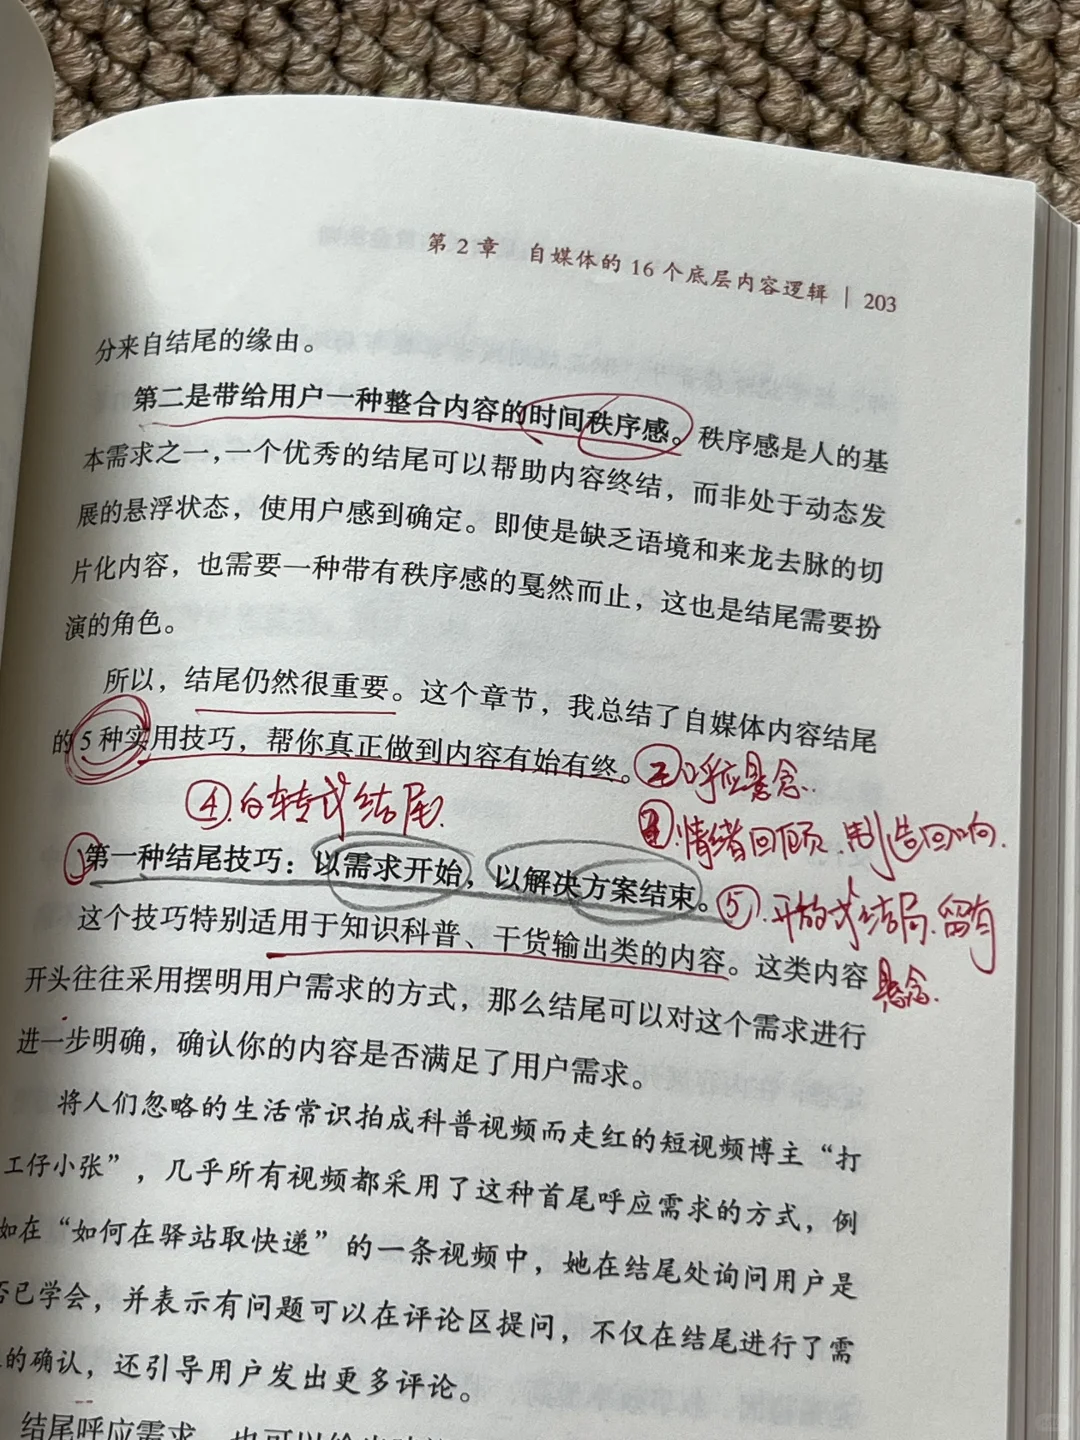 第2章 自媒体的16个底层内容逻辑 | 203
分来自结尾的缘由。
第二是带给用户一种整合内容的时间秩序感。秩序感是人的基
本需求之一，一个优秀的结尾可以帮助内容终结，而非处于动态发
展的悬浮状态，使用户感到确定。即使是缺乏语境和来龙去脉的切
片化内容，也需要一种带有秩序感的戛然而止，这也是结尾需要扮
演的角色。
所以，结尾仍然很重要。这个章节，我总结了自媒体内容结尾
的5种实用技巧，帮你真正做到内容有始有终。
②呼应悬念.
④.白转式结尾.
.情绪回顾.制造回响.
①第一种结尾技巧：以需求开始，以解决方案结束。
⑤.开放式结局.留有
悬念.
这个技巧特别适用于知识科普、干货输出类的内容。这类内容
开头往往采用摆明用户需求的方式，那么结尾可以对这个需求进行
进一步明确，确认你的内容是否满足了用户需求。
将人们忽略的生活常识拍成科普视频而走红的短视频博主“打
工仔小张”，几乎所有视频都采用了这种首尾呼应需求的方式，例
如在“如何在驿站取快递”的一条视频中，她在结尾处询问用户是
否已学会，并表示有问题可以在评论区提问，不仅在结尾进行了需
的确认，还引导用户发出更多评论。
结尾呼应需求，也可以给